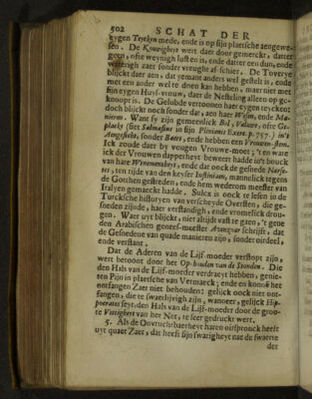 502 SCHAT DER
eygen Teyeken mede, ende is op sijn plaetsche aengewe-
sen. De Kouwigheit wert daer door gemerckt, datter
geen, ofte weynigh lust en is, ende datter een dun, ende
waterigh zaet sonder vreughe af-schiet. De Toverye
blijckt daer aen, dat yemant anders wel gestelt is, ende
met een ander wel te doen kan hebben, maer niet met
sijn eygen Huys-vrouw, daer de Nestelingh alleen op ge-
knoopt is. De Gelubde vertoonen haer eygen teycken:
doch blijckt noch sonder dat, aen haer Wesen, ende Ma-
nieren. Want sy zijn gemeenlick Bol, Vadsigh, ofte Ge-
placks (siet Salmasius in sijn Plenianis Exerc. p. 757.) in 't
Aengesicht, sonder Baert, ende hebben een Vrouwen-stem.
Ick zoude daer by veugen Vrouwe-moet; 't en ware
ick der Vrouwen dapperheyt beweert hadde in 't boeck
van hare Wtnementheyt, ende dat oock de gesnede Narse-
tes, ten tijde van den keyser Justiniaen, mannelick tegens
de Gotthen gestreden, ende hem wederom meester van
Italyen gemaeckt hadde. Sulcx is oock te lesen in de
Turcksche historyen van verscheyde Oversten, die ge-
sneden zijnde, haer verstandigh, ende vromelick droe-
gen. Waer uyt blijckt, niet altijdt vast te gaen, 't gene
den Arabischen genees-meester Avenzoar schrijft, dat
de Gesnedene van quade manieren zijn, sonder oirdeel,
ende verstant.
Dat de Aderen van de Lijf-moeder verstopt zijn,
wert betoont door het Op-houden van de Stonden. Die
den Hals van de Lijf-moeder verdraeyt hebben, genie-
ten Pijn in plaetsche van Vermaeck; ende en konnen het
ontfangen Zaet niet behouden: gelijck oock niet ont-
fangen, die te swaerlijvigh zijn, wanneer, gelijck Hip-
pocrates seyt, den Hals van de Lijf-moeder door de groo-
te Vettigheyt van het Net, te seer gedruckt wert.
5. Als de Onvruchtbaerheyt haren oirspronck heeft
uyt quaet Zaet, dat heeft sijn swarigheyt nae de swaerte
der